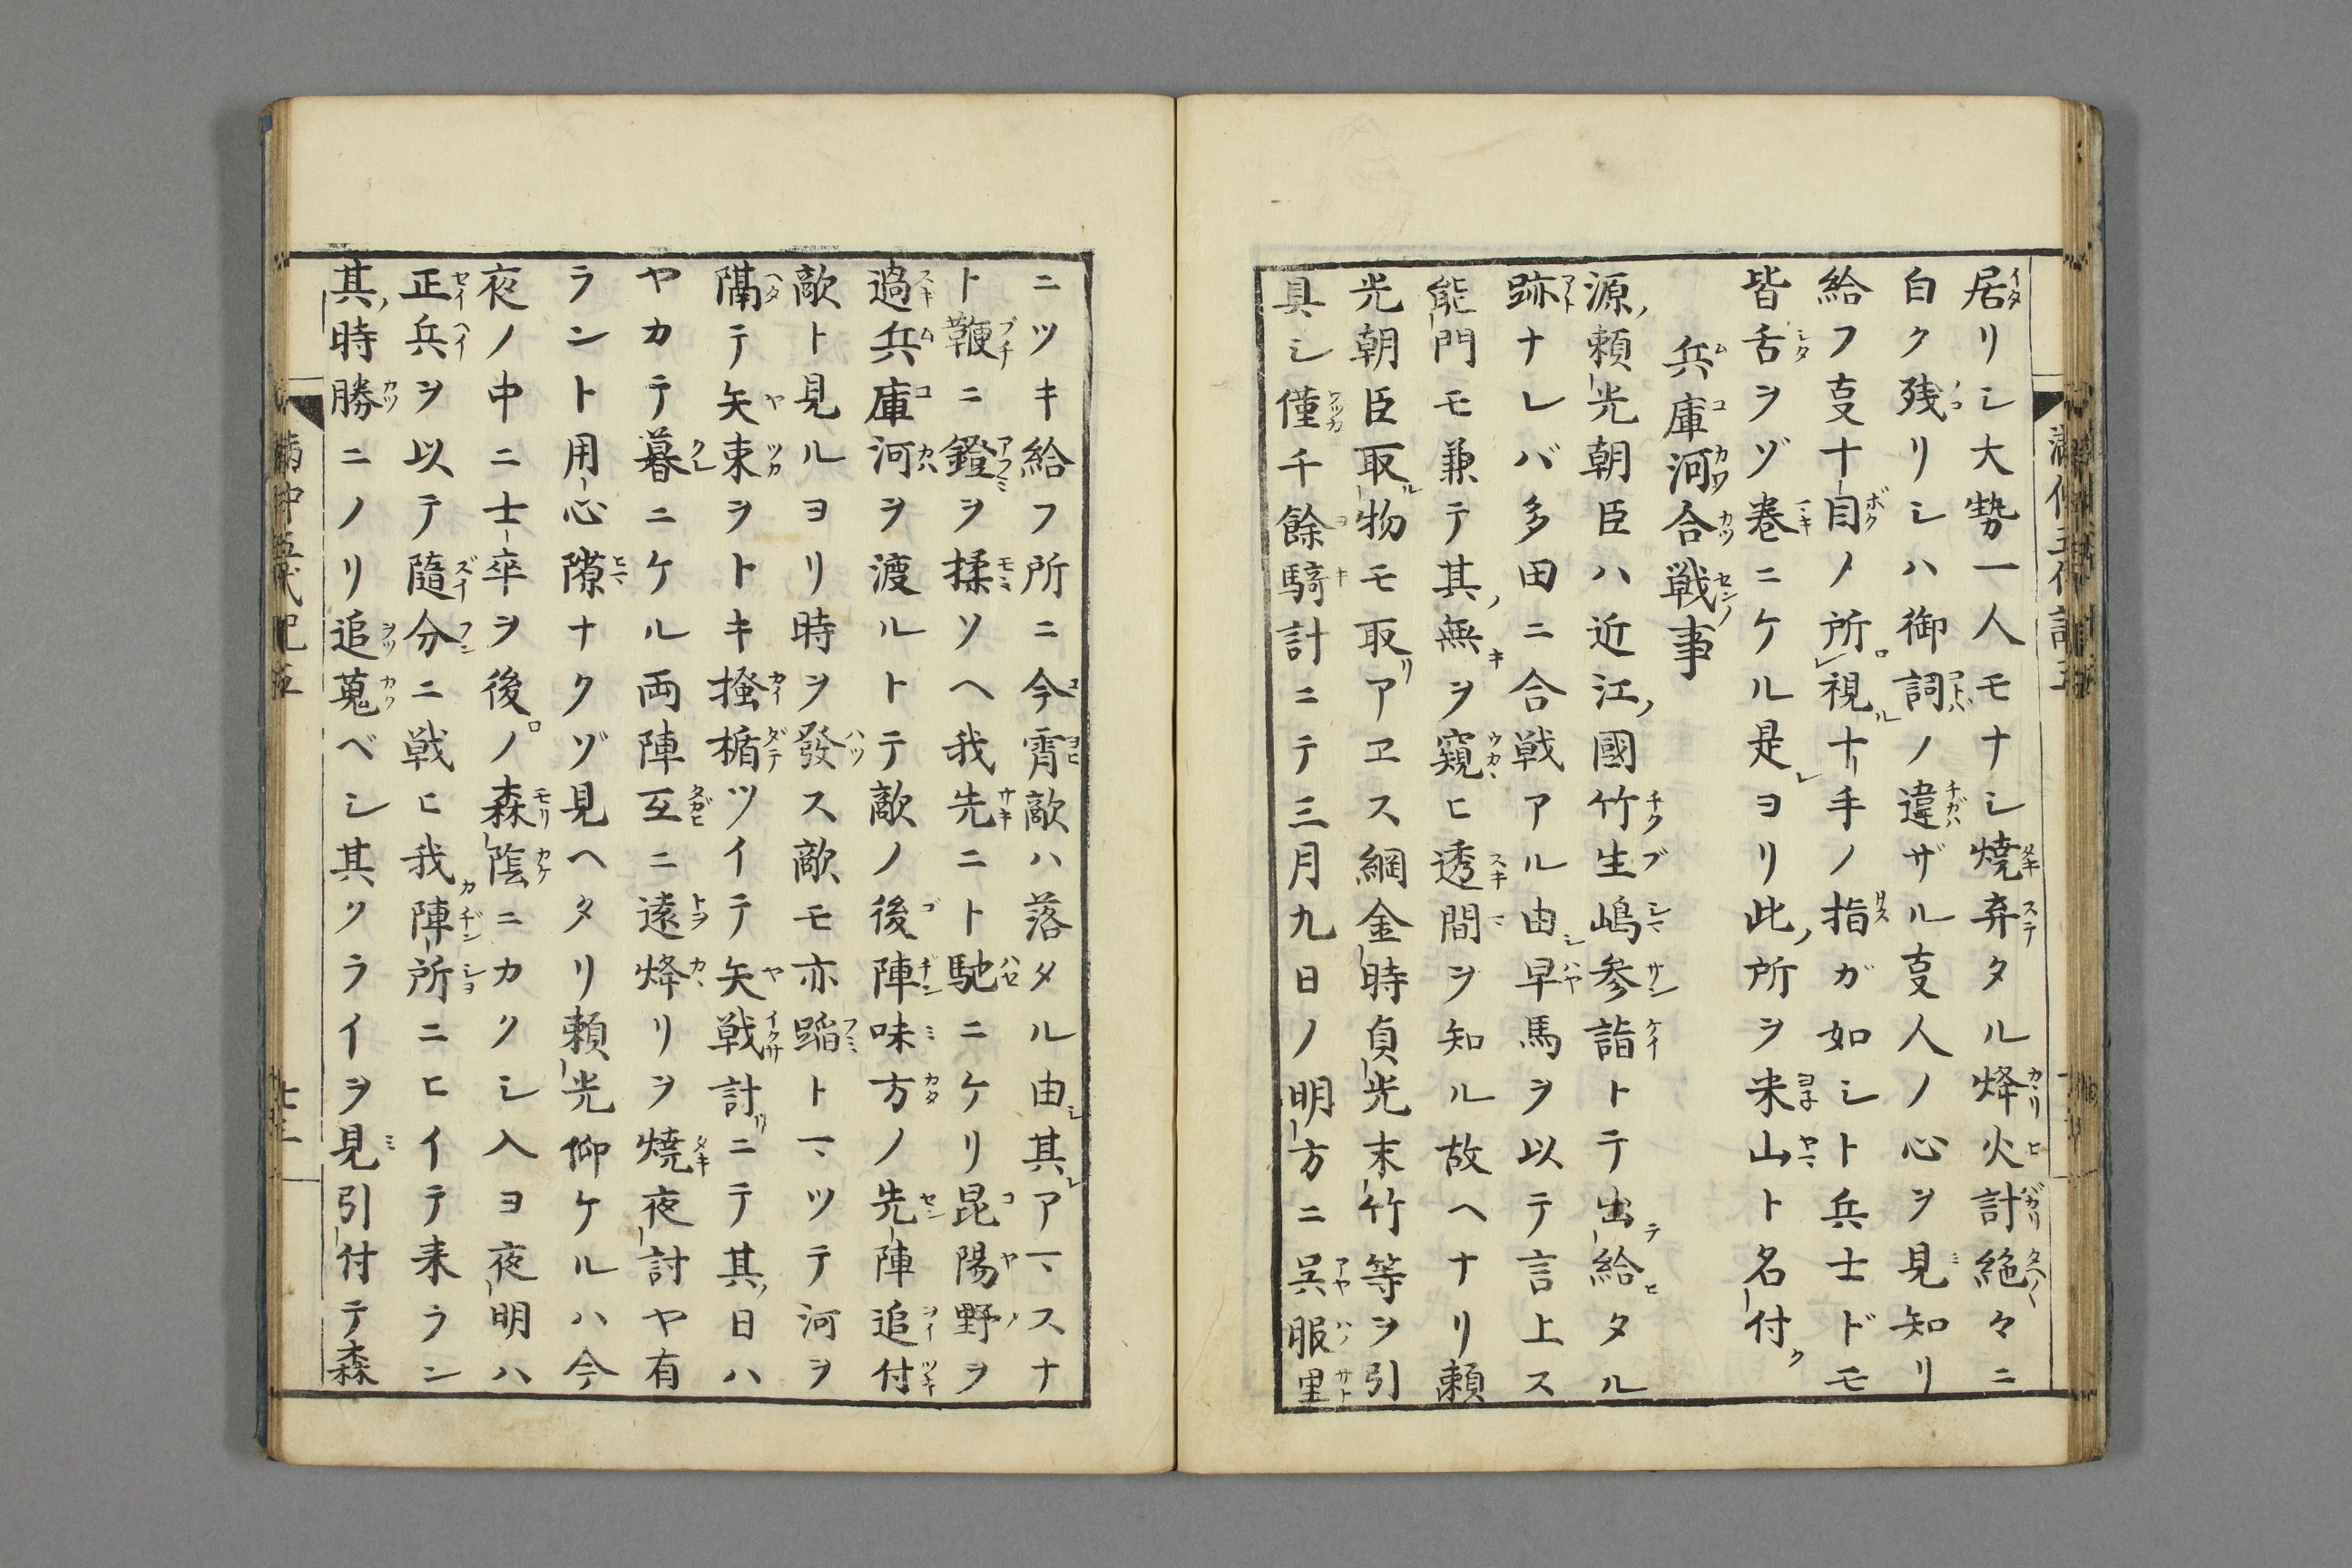 居リシ大勢一人モナシ焼弃タル烽火計絶々ニ
白ク残リシハ御詞ノ違ザル㕝人ノ心ヲ見知リ
給フ㕝十目ノ所視十手ノ指ガ如シト兵士ドモ
皆舌ヲゾ巻ニケル是ヨリ此所ヲ米山ト名付
兵庫河合戦事
源頼光朝臣ハ近江國竹生嶋参詣トテ出給タル
跡ナレバ多田ニ合戦アル由早馬ヲ以テ言上ス
能門モ兼テ其無ヲ窺ヒ透間ヲ知ル故ヘナリ頼
光朝臣取物モ取アヱス綱金時貞光末竹等ヲ引
具シ僅千餘騎計ニテ三月九日ノ明方ニ呉服里
ニツキ給フ所ニ今霄敵ハ落タル由其アヽスナ
ト鞭ニ鐙ヲ揉ソヘ我先ニト馳ニケリ昆陽野ヲ
過兵庫河ヲ渡ルトテ敵ノ後陣味方ノ先陣追付
敵ト見ルヨリ時ヲ發ス敵モ亦蹈トヽツテ河ヲ
隔テ矢束ヲトキ掻楯ツイテ矢戦計ニテ其日ハ
ヤカテ暮ニケル両陣互ニ遠烽リヲ焼夜討ヤ有
ラント用心隙ナクゾ見ヘタリ頼光仰ケルハ今
夜ノ中ニ士卒ヲ後ノ森陰ニカクシ入ヨ夜明ハ
正兵ヲ以テ隨分ニ戦ヒ我陣所ニヒイテ来ラン
其時勝ニノリ追蒐ベシ其クライヲ見引付テ森